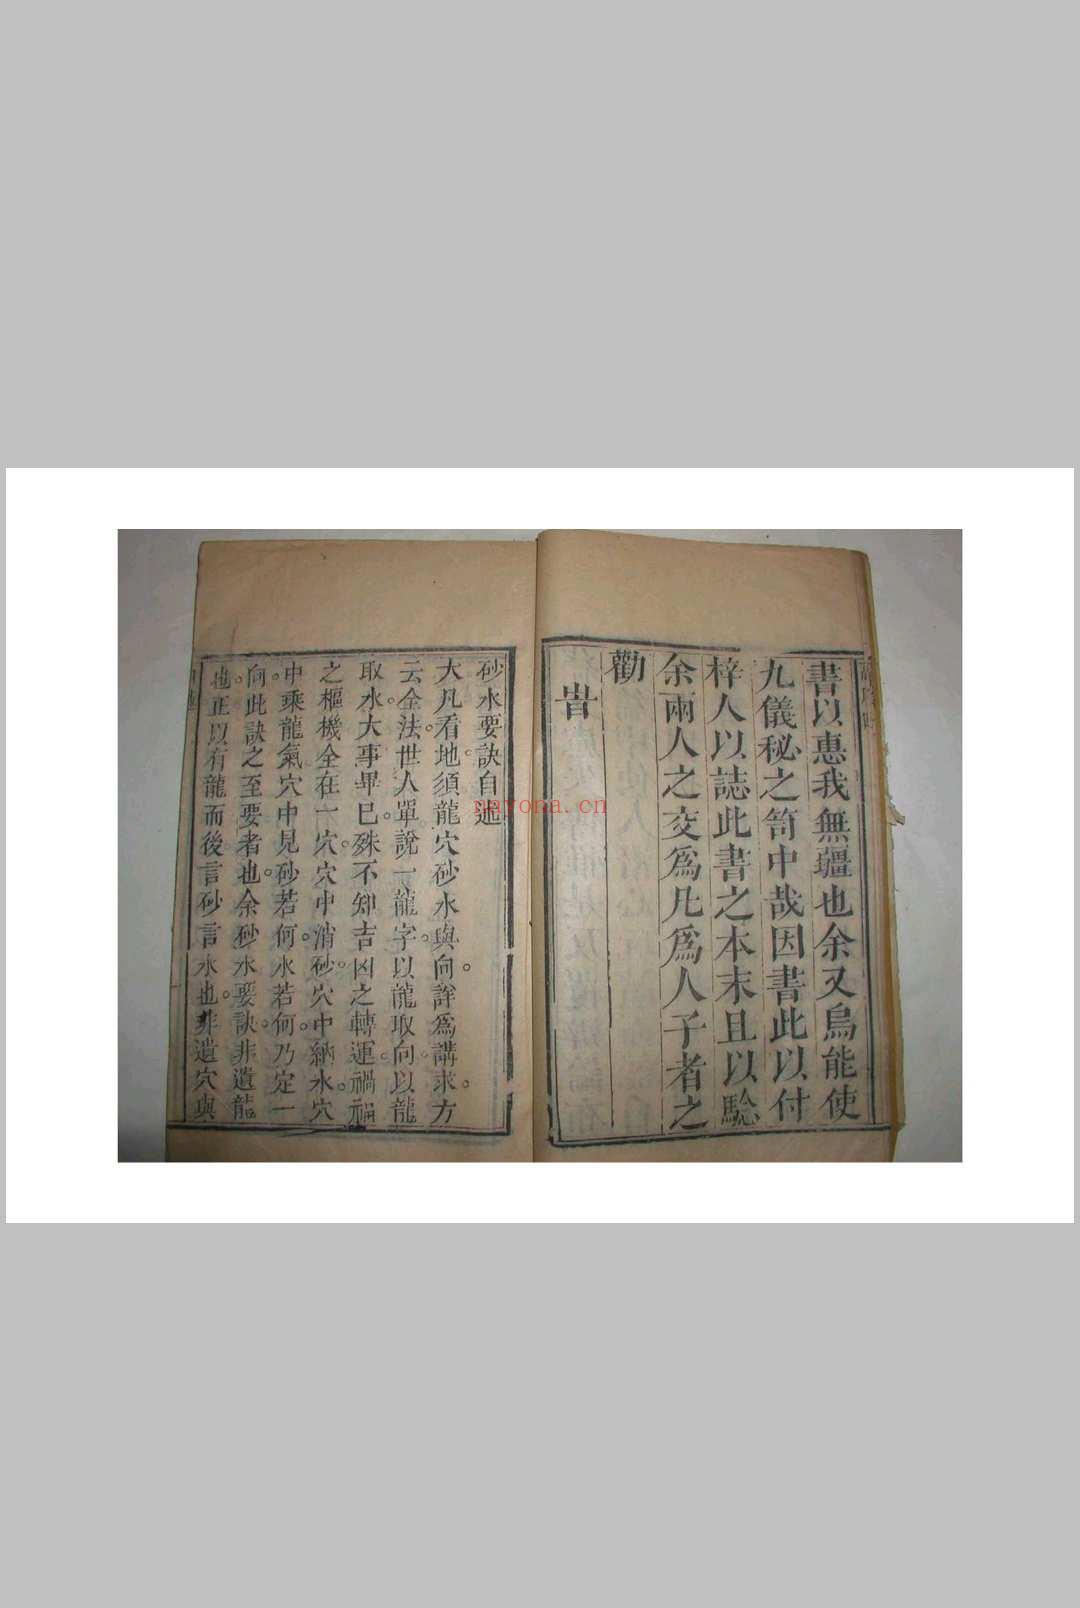 書以惠我無疆也余又烏能使
九儀秘之笥中哉因書此以付
梓人以誌此書之本末且以驗
余兩人之交爲凡爲人子者之
勸
旹
砂水要訣自述
大凡看地須龍穴砂水與向詳爲講求方
云全法世人單說一龍字以龍取向以龍
取水大事畢巳殊不知吉凶之轉運禍福
之樞機全在一穴穴中消砂穴中納水穴
中乘龍氣穴中見砂若何水若何乃定一
向此訣之至要者也余砂水要訣非遺龍
也正以有龍而後言砂言水也非遺穴與
nayona.cn